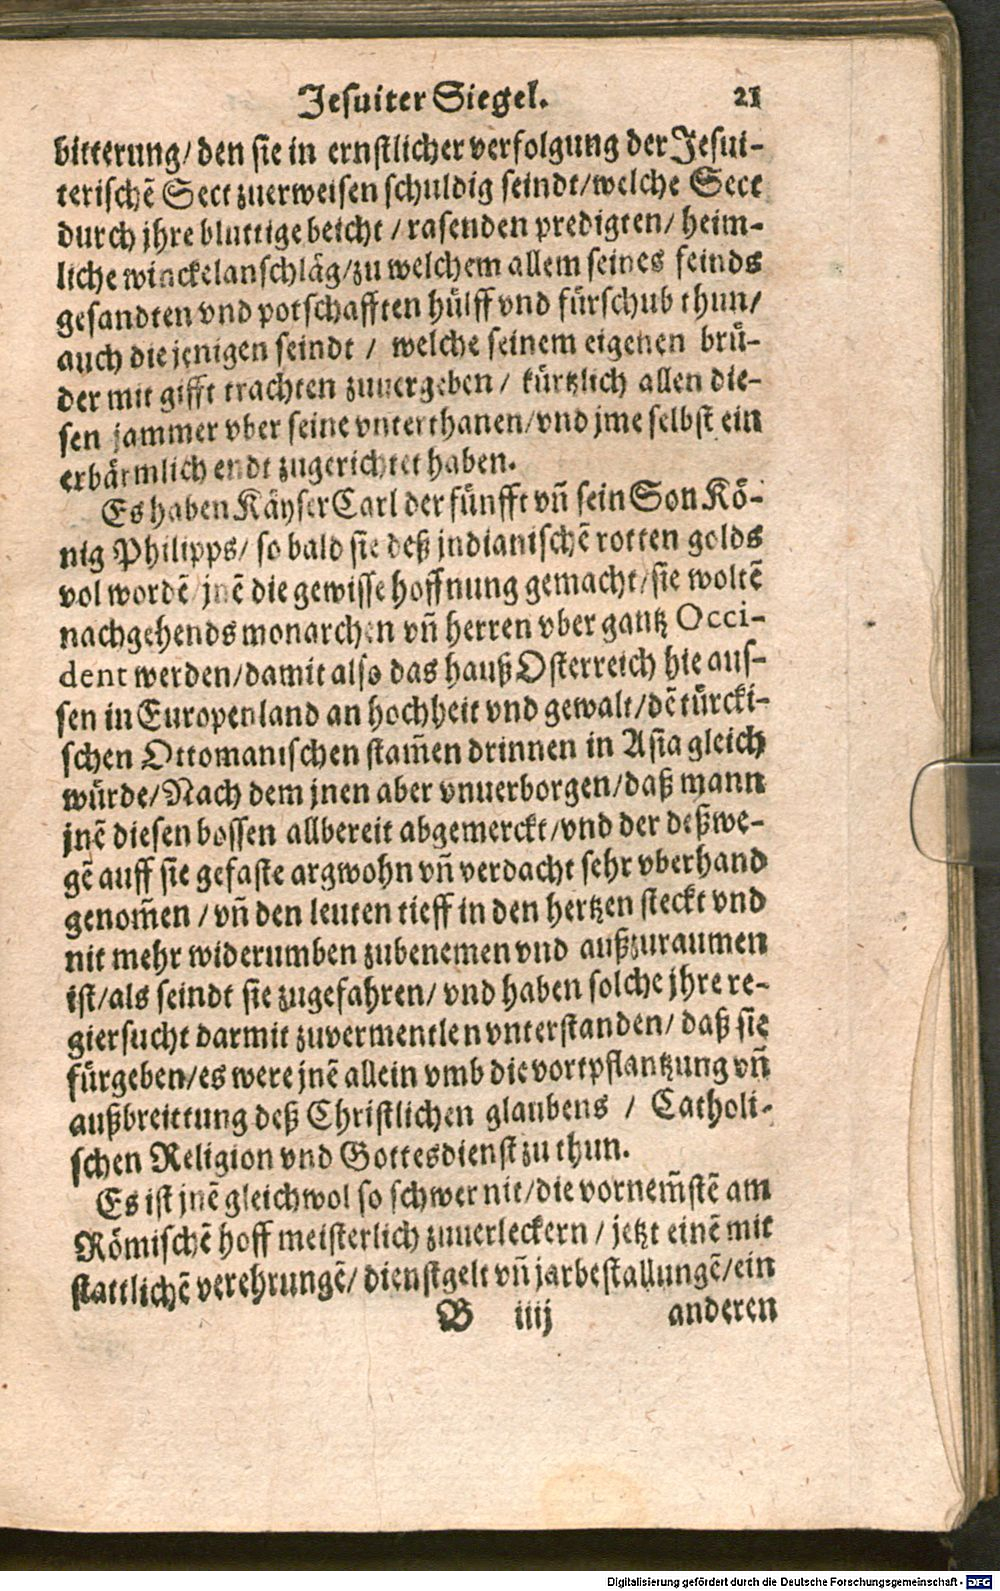 Jesuiter Siegel. 21
bitterung/ den sie in ernstlicher verfolgung der Jesui-
terischẽ Sect zuerweisen schuldig seindt/welche Sect
durch jhre bluttige beicht / rasenden predigten/ heim-
liche winckelanschläg/zu welchem allem seines feinds
gesandten vnd potschafften hülff vnd fürschub thun/
auch die jenigen seindt / welche seinem eigenen brü-
der mit gifft trachten zuuergeben / kürtzlich allen die-
sen jammer vber seine vnterthanen/vnd jme selbst ein
erbärmlich endt zugerichtet haben.
Es haben Käyser Carl der fünfft vñ sein Son Kö-
nig Philipps/ so bald sie deß jndianischẽ rotten golds
vol wordẽ/jnẽ die gewisse hoffnung gemacht/sie woltẽ
nachgehends monarchen vñ herren vber gantz Occi-
dent werden/damit also das hauß Osterreich hie aus-
sen in Europenland an hochheit vnd gewalt/dẽ türcki-
schen Ottomanischen stam̃en drinnen in Asia gleich
würde/Nach dem jnen aber vnuerborgen/daß mann
jnẽ diesen bossen allbereit abgemerckt/vnd der deßwe-
gẽ auff sie gefaste argwohn vñ verdacht sehr vberhand
genom̃en /vñ den leuten tieff in den hertzen steckt vnd
nit mehr widerumben zubenemen vnd außzuraumen
ist/als seindt sie zugefahren/ vnd haben solche jhre re-
giersucht darmit zuvermentlen vnterstanden/ daß sie
fürgeben/es were jnẽ allein vmb die vortpflantzung vñ
außbreittung deß Christlichen glaubens / Catholi-
schen Religion vnd Gottesdienst zu thun.
Es ist jnẽ gleichwol so schwer nit/die vornem̃stẽ am
Römischẽ hoff meisterlich zuuerleckern / jetzt einẽ mit
stattlichẽ verehrungẽ/ dienstgelt vñ jarbestallungẽ/ein
B iiij anderen
Digitalisierung gefördert durch die Deutsche Forschungsgemeinschaft - DFG